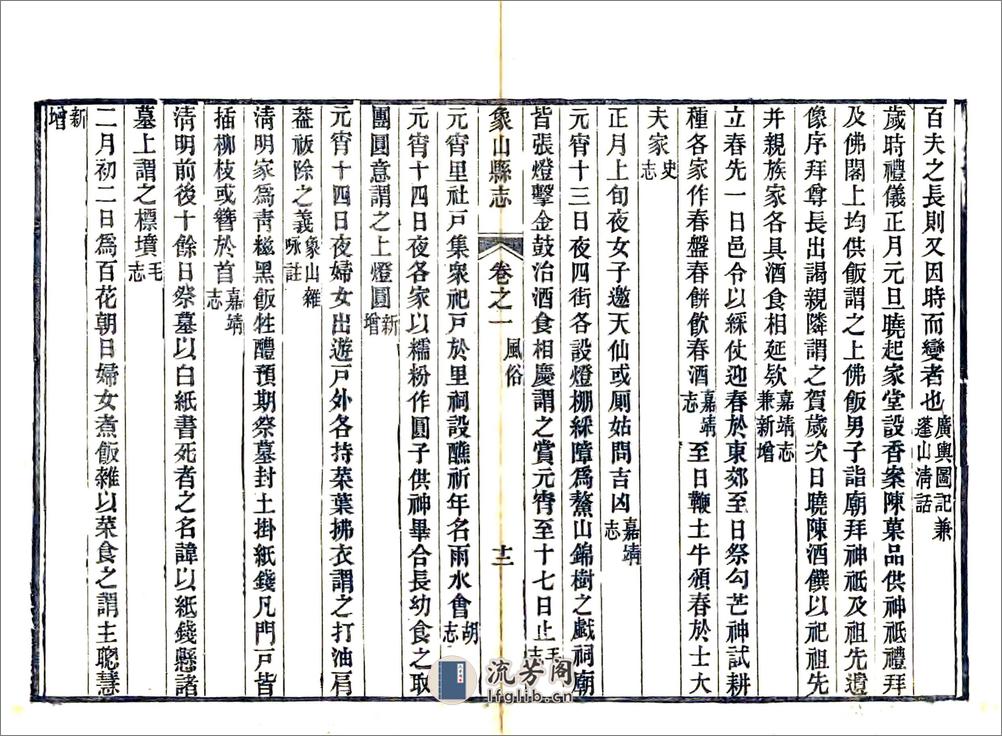 百夫之長則又因時而變者也廣輿圖記兼蓬山淸話
歲時禮儀正月元旦曉起家堂設香案陳菓品供神祗禮拜
及佛閣上均供飯謂之上佛飯男子詣廟拜神祗及祖先遺
像序拜尊長出謁親隣謂之賀歲次日曉陳酒饌以祀祖先
并親族家各具酒食相延欵嘉靖志兼新增
立春先一日邑令以綵仗迎春於東郊至日祭勾芒神試耕
種各家作春盤春餅飮春酒嘉靖志至日鞭土牛頒春於士大
夫家史志
正月上旬夜女子邀天仙或厠姑問吉凶嘉靖志
元宵十三日夜四街各設燈棚綵障爲鰲山錦樹之戲祠廟
皆張燈擊金鼓治酒食相慶謂之賞元宵至十七日止毛志
象山縣志
卷之一
風俗
十二
元宵里社戸集衆祀戸於里祠設醮祈年名雨水會胡志
元宵十四日夜各家以糯粉作圓子供神畢合長幼食之取
團圓意謂之上燈圓新增
元宵十四日夜婦女出遊戸外各持菜葉拂衣謂之打油肩
葢祓除之義象山雜咏註
淸明家爲靑糍黑飯牲醴預期祭墓封土掛紙錢凡門戸皆
插柳枝或簪於首嘉靖志
淸明前後十餘日祭墓以白紙書死者之名諱以紙錢懸諸
墓上謂之標墳毛志
二月初二日爲百花朝日婦女煮飯雜以菜食之謂主聰慧
新增
流芳阁
lfglib.com